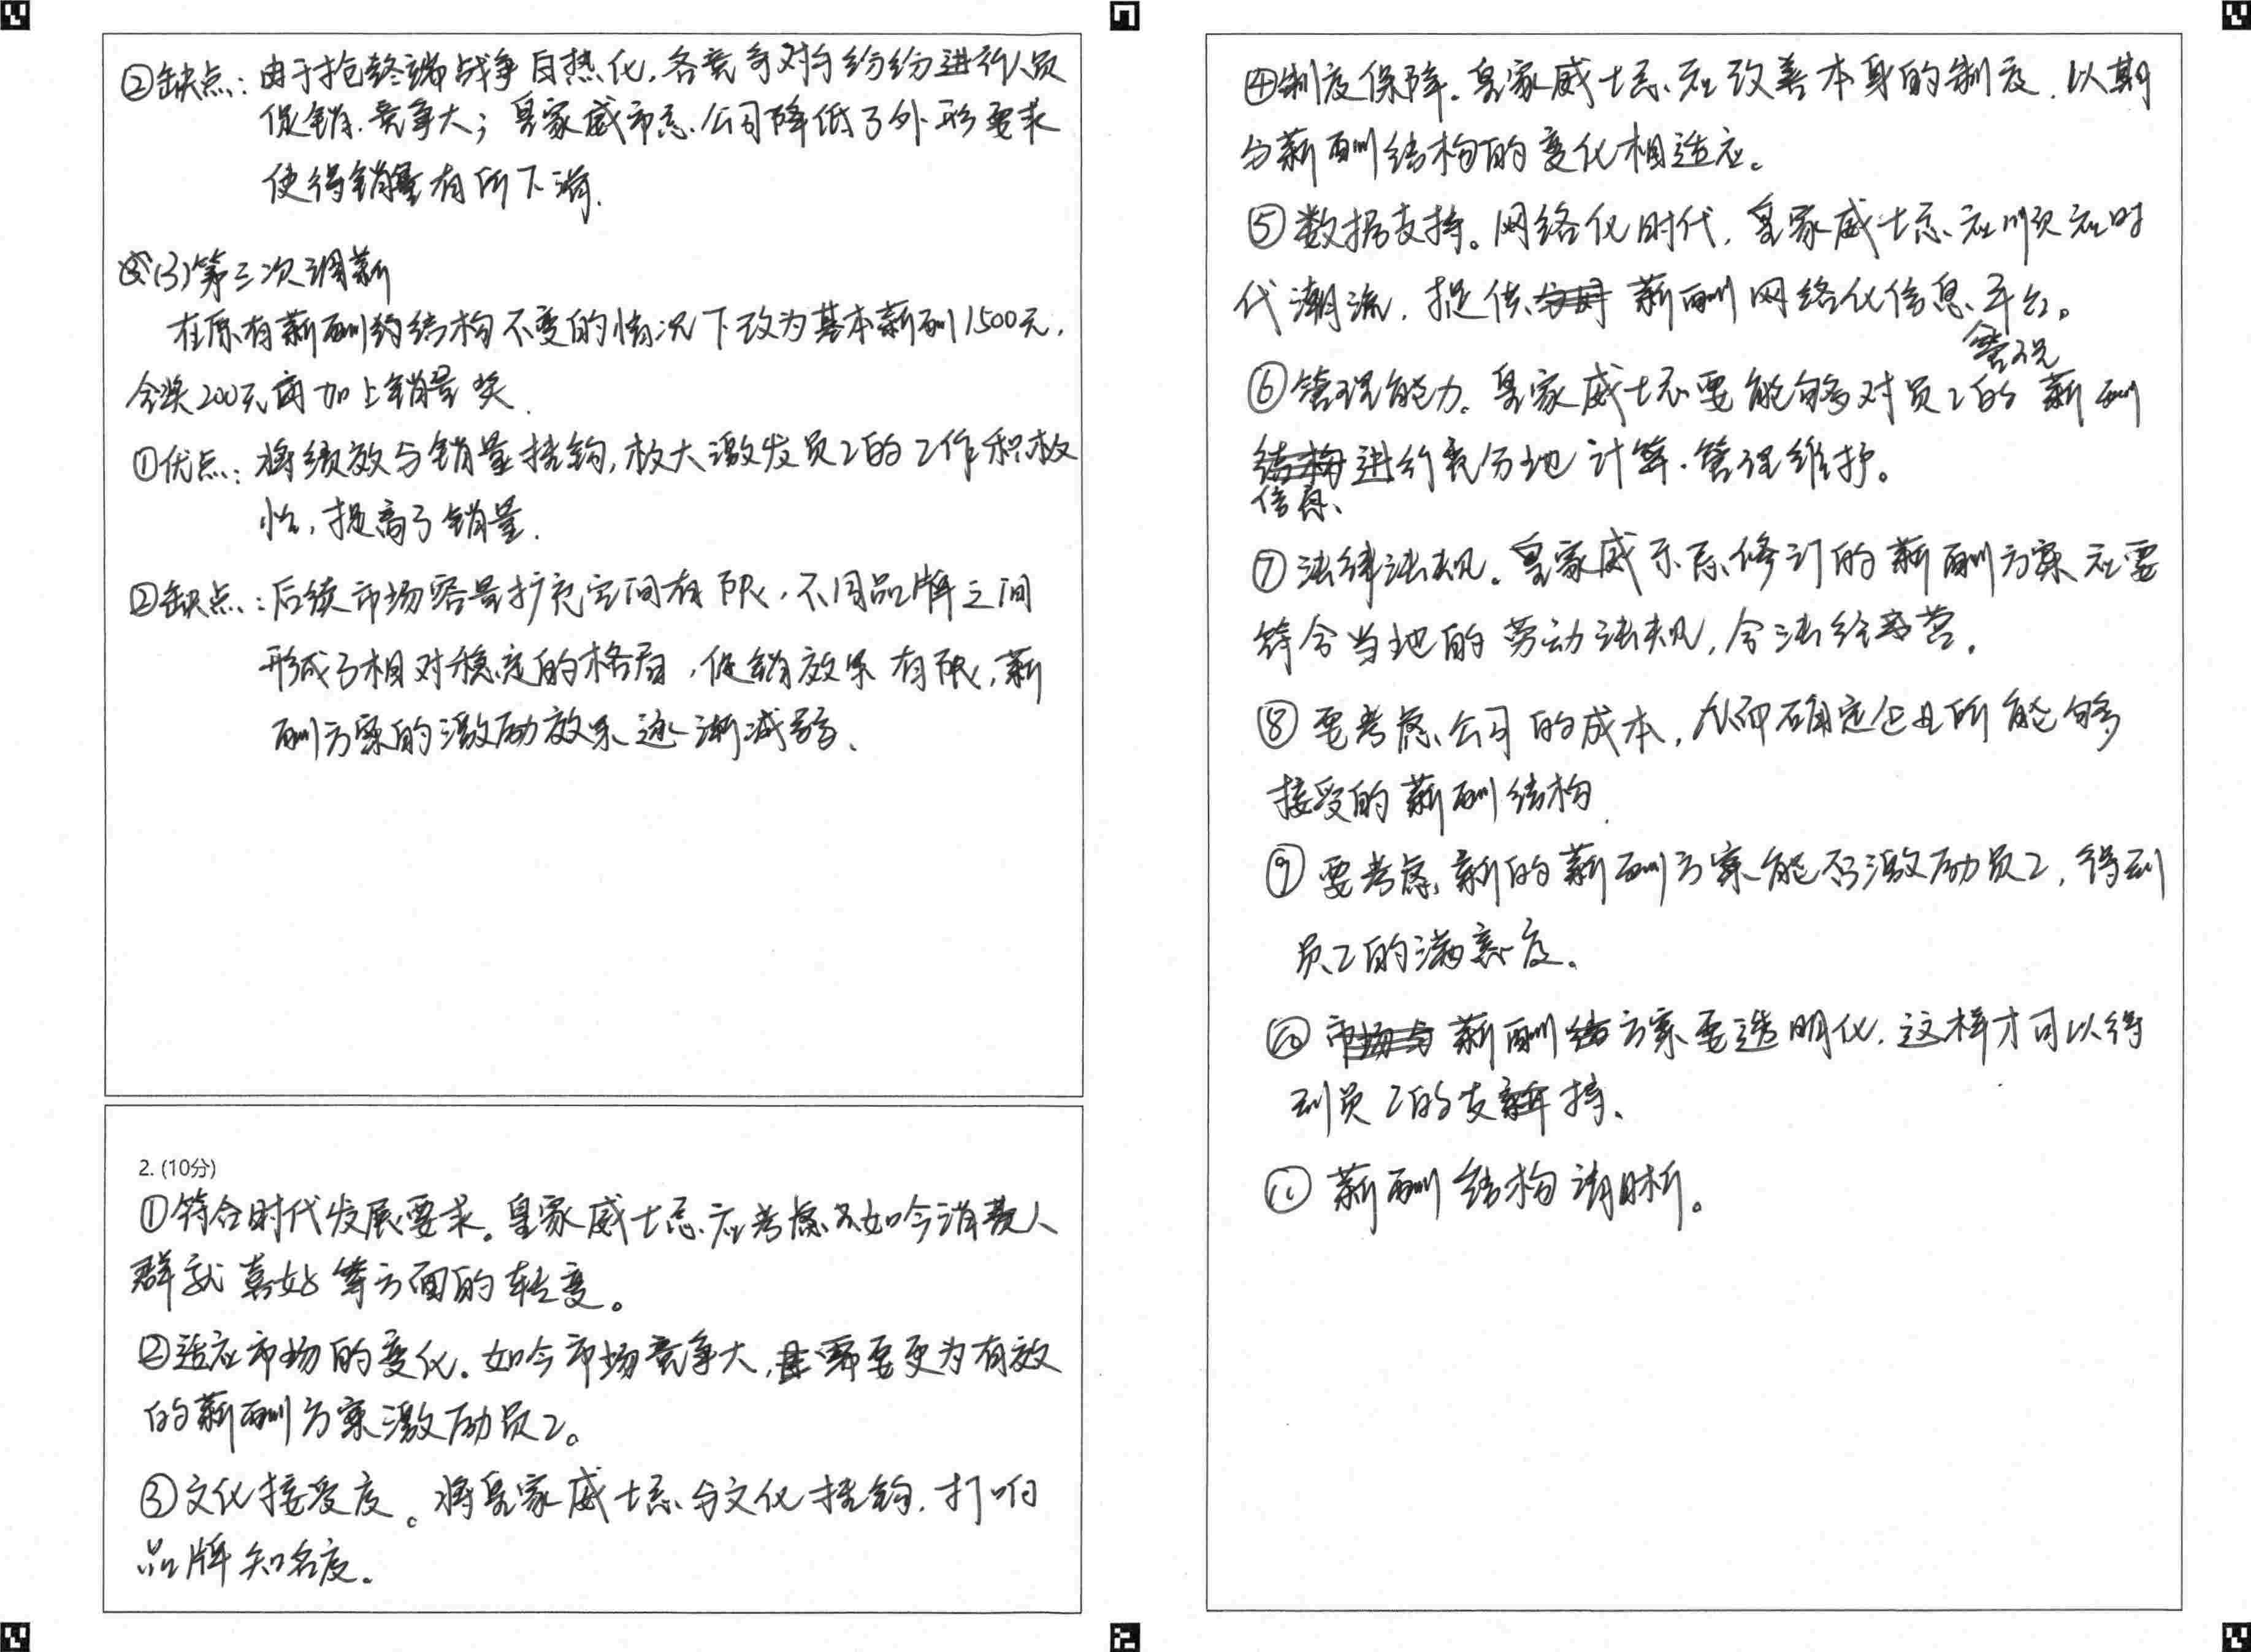 ②缺点：由于抢终端战争白热化，各竞争对手纷纷进行人员
促销，竞争大；皇家威士忌公司降低了外形要求
使得销量有所下滑．
(3)第三次调薪
在原有薪酬的结构不变的情况下改为基本薪酬1500元，
全奖200元再加上销量奖．
①优点：将绩效与销量挂钩，极大激发员工的工作积极
性，提高了销量．
②缺点：后续市场容量扩充空间有限，不同品牌之间
形成了相对稳定的格局，促销效果有限，薪
酬方案的激励效果逐渐减弱、
2. (10分)
①符合时代发展要求。皇家威士忌应考虑如今消费人
群就喜好等方面的转变。
②适应市场的变化。如今市场竞争大，需要更为有效
的薪酬方案激励员工。
③文化接受度。将皇家威士忌与文化挂钩，打响
品牌知名度。
④制度保障。皇家威士忌应改善本身的制度，以期
与薪酬结构的变化相适应。
⑤数据支持。网络化时代，皇家威士忌应顺应时
代潮流，提供薪酬网络化信息平台。
⑥管理能力。皇家威士忌要能够对员工的薪酬
管理
信息
进行充分地计算、管理维护。
⑦法律法规。皇家威士忌修订的薪酬方案应要
符合当地的劳动法规，合法经营。
⑧要考虑公司的成本，从而确定企业所能够
接受的薪酬结构．
⑨要考虑新的薪酬方案能否激励员工，得到
员工的满意度。
⑩薪酬方案要透明化，这样才可以得
到员工的支持、
⑪薪酬结构清晰。